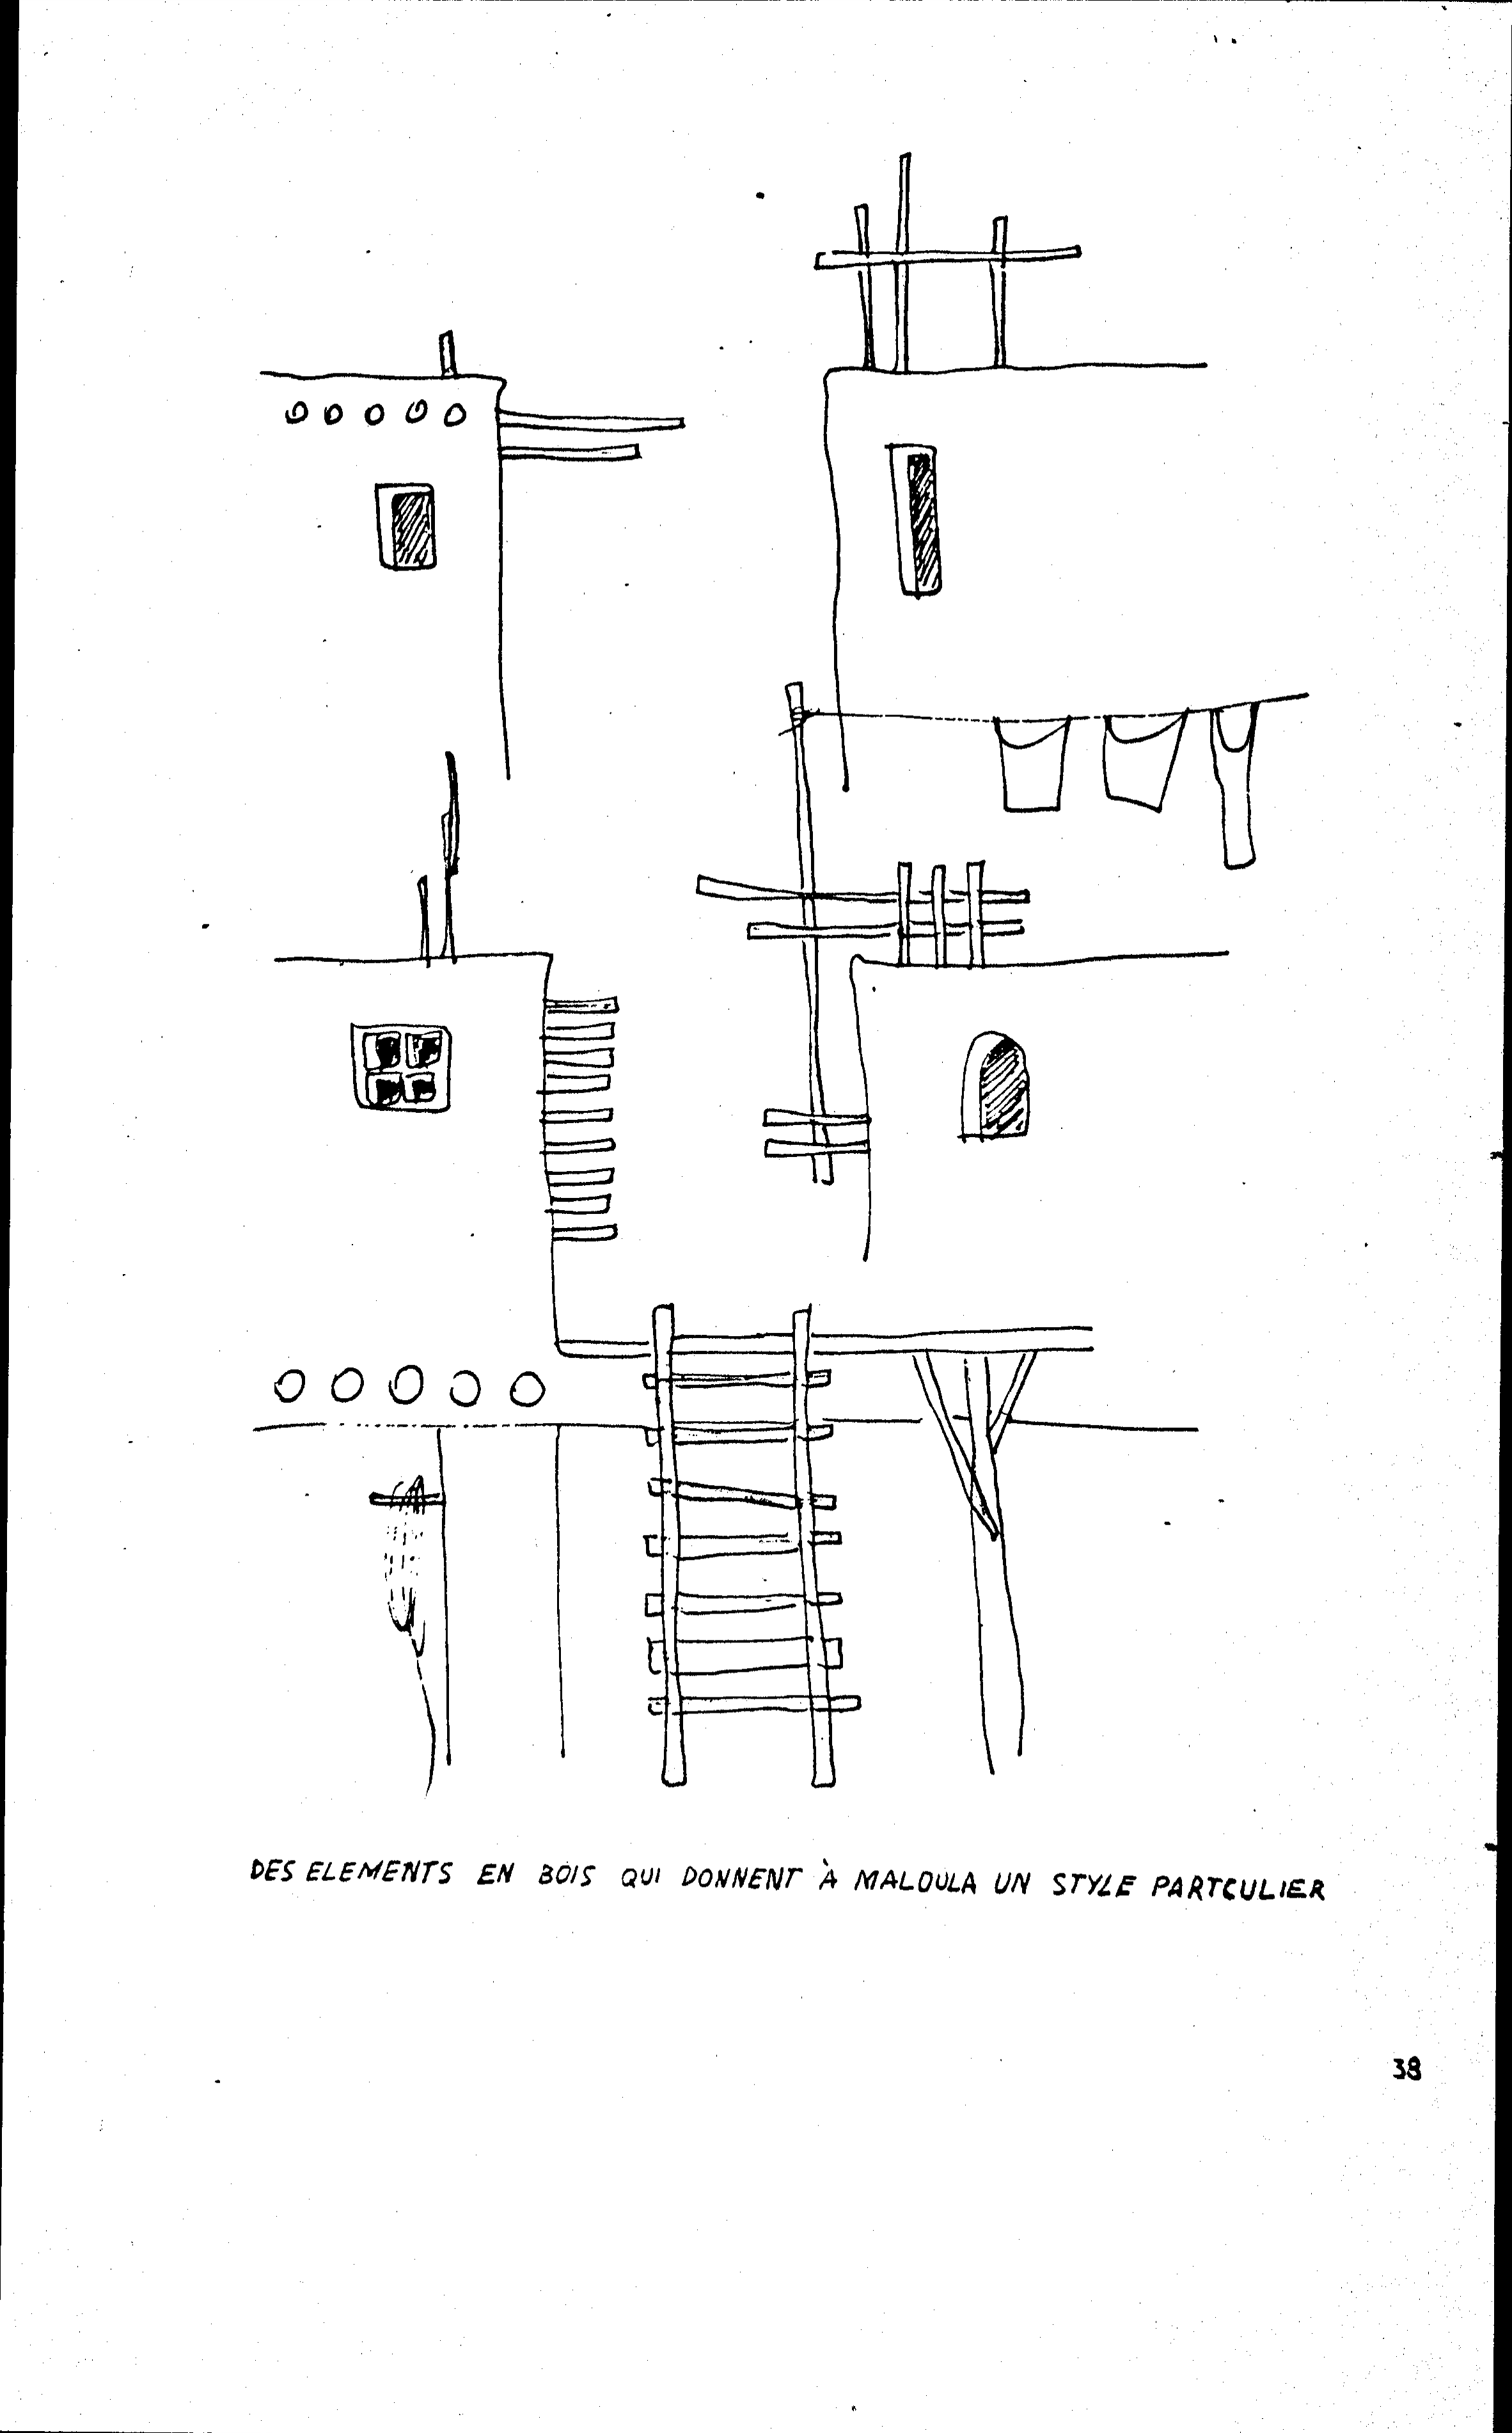 DES ELEMENTS EN BOIS QUI DONNENT À MALOULA UN STYLE PARTCULIER
38